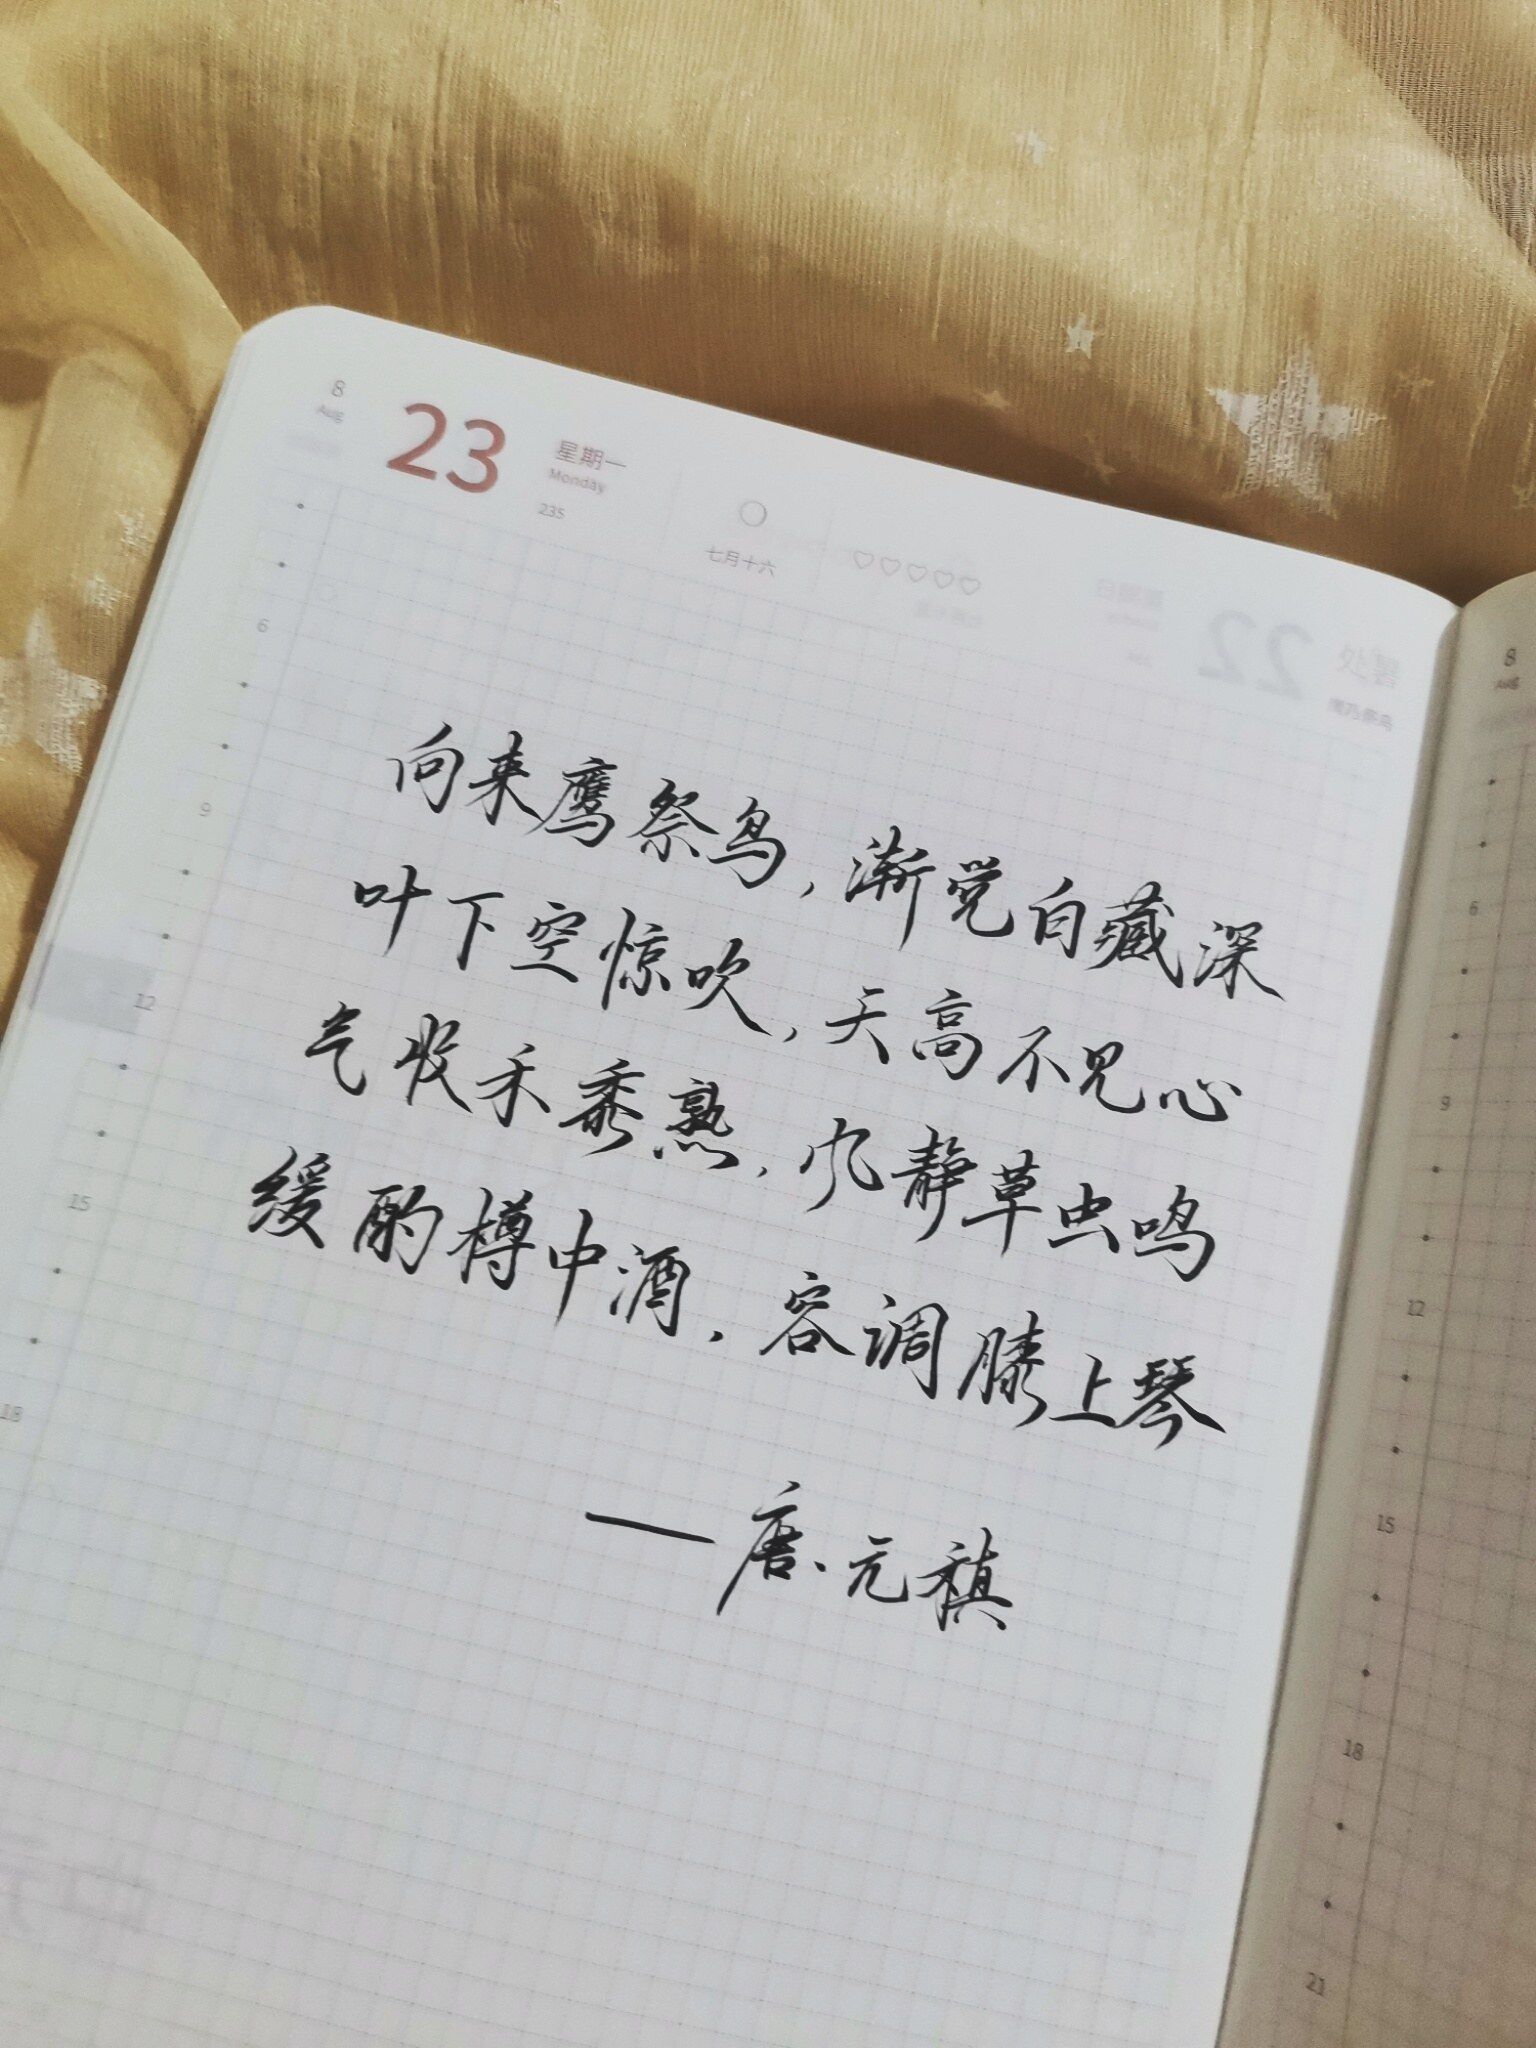 8
Aug
23
星期一
Monday
235
七月十六
向来鹰祭鸟,渐觉白藏深
叶下空惊吹,天高不见心
气收禾黍熟,风静草虫鸣
缓酌樽中酒,容调膝上琴
——唐、元稹
6
9
12
15
18
8
Aug
6
9
12
15
18
21